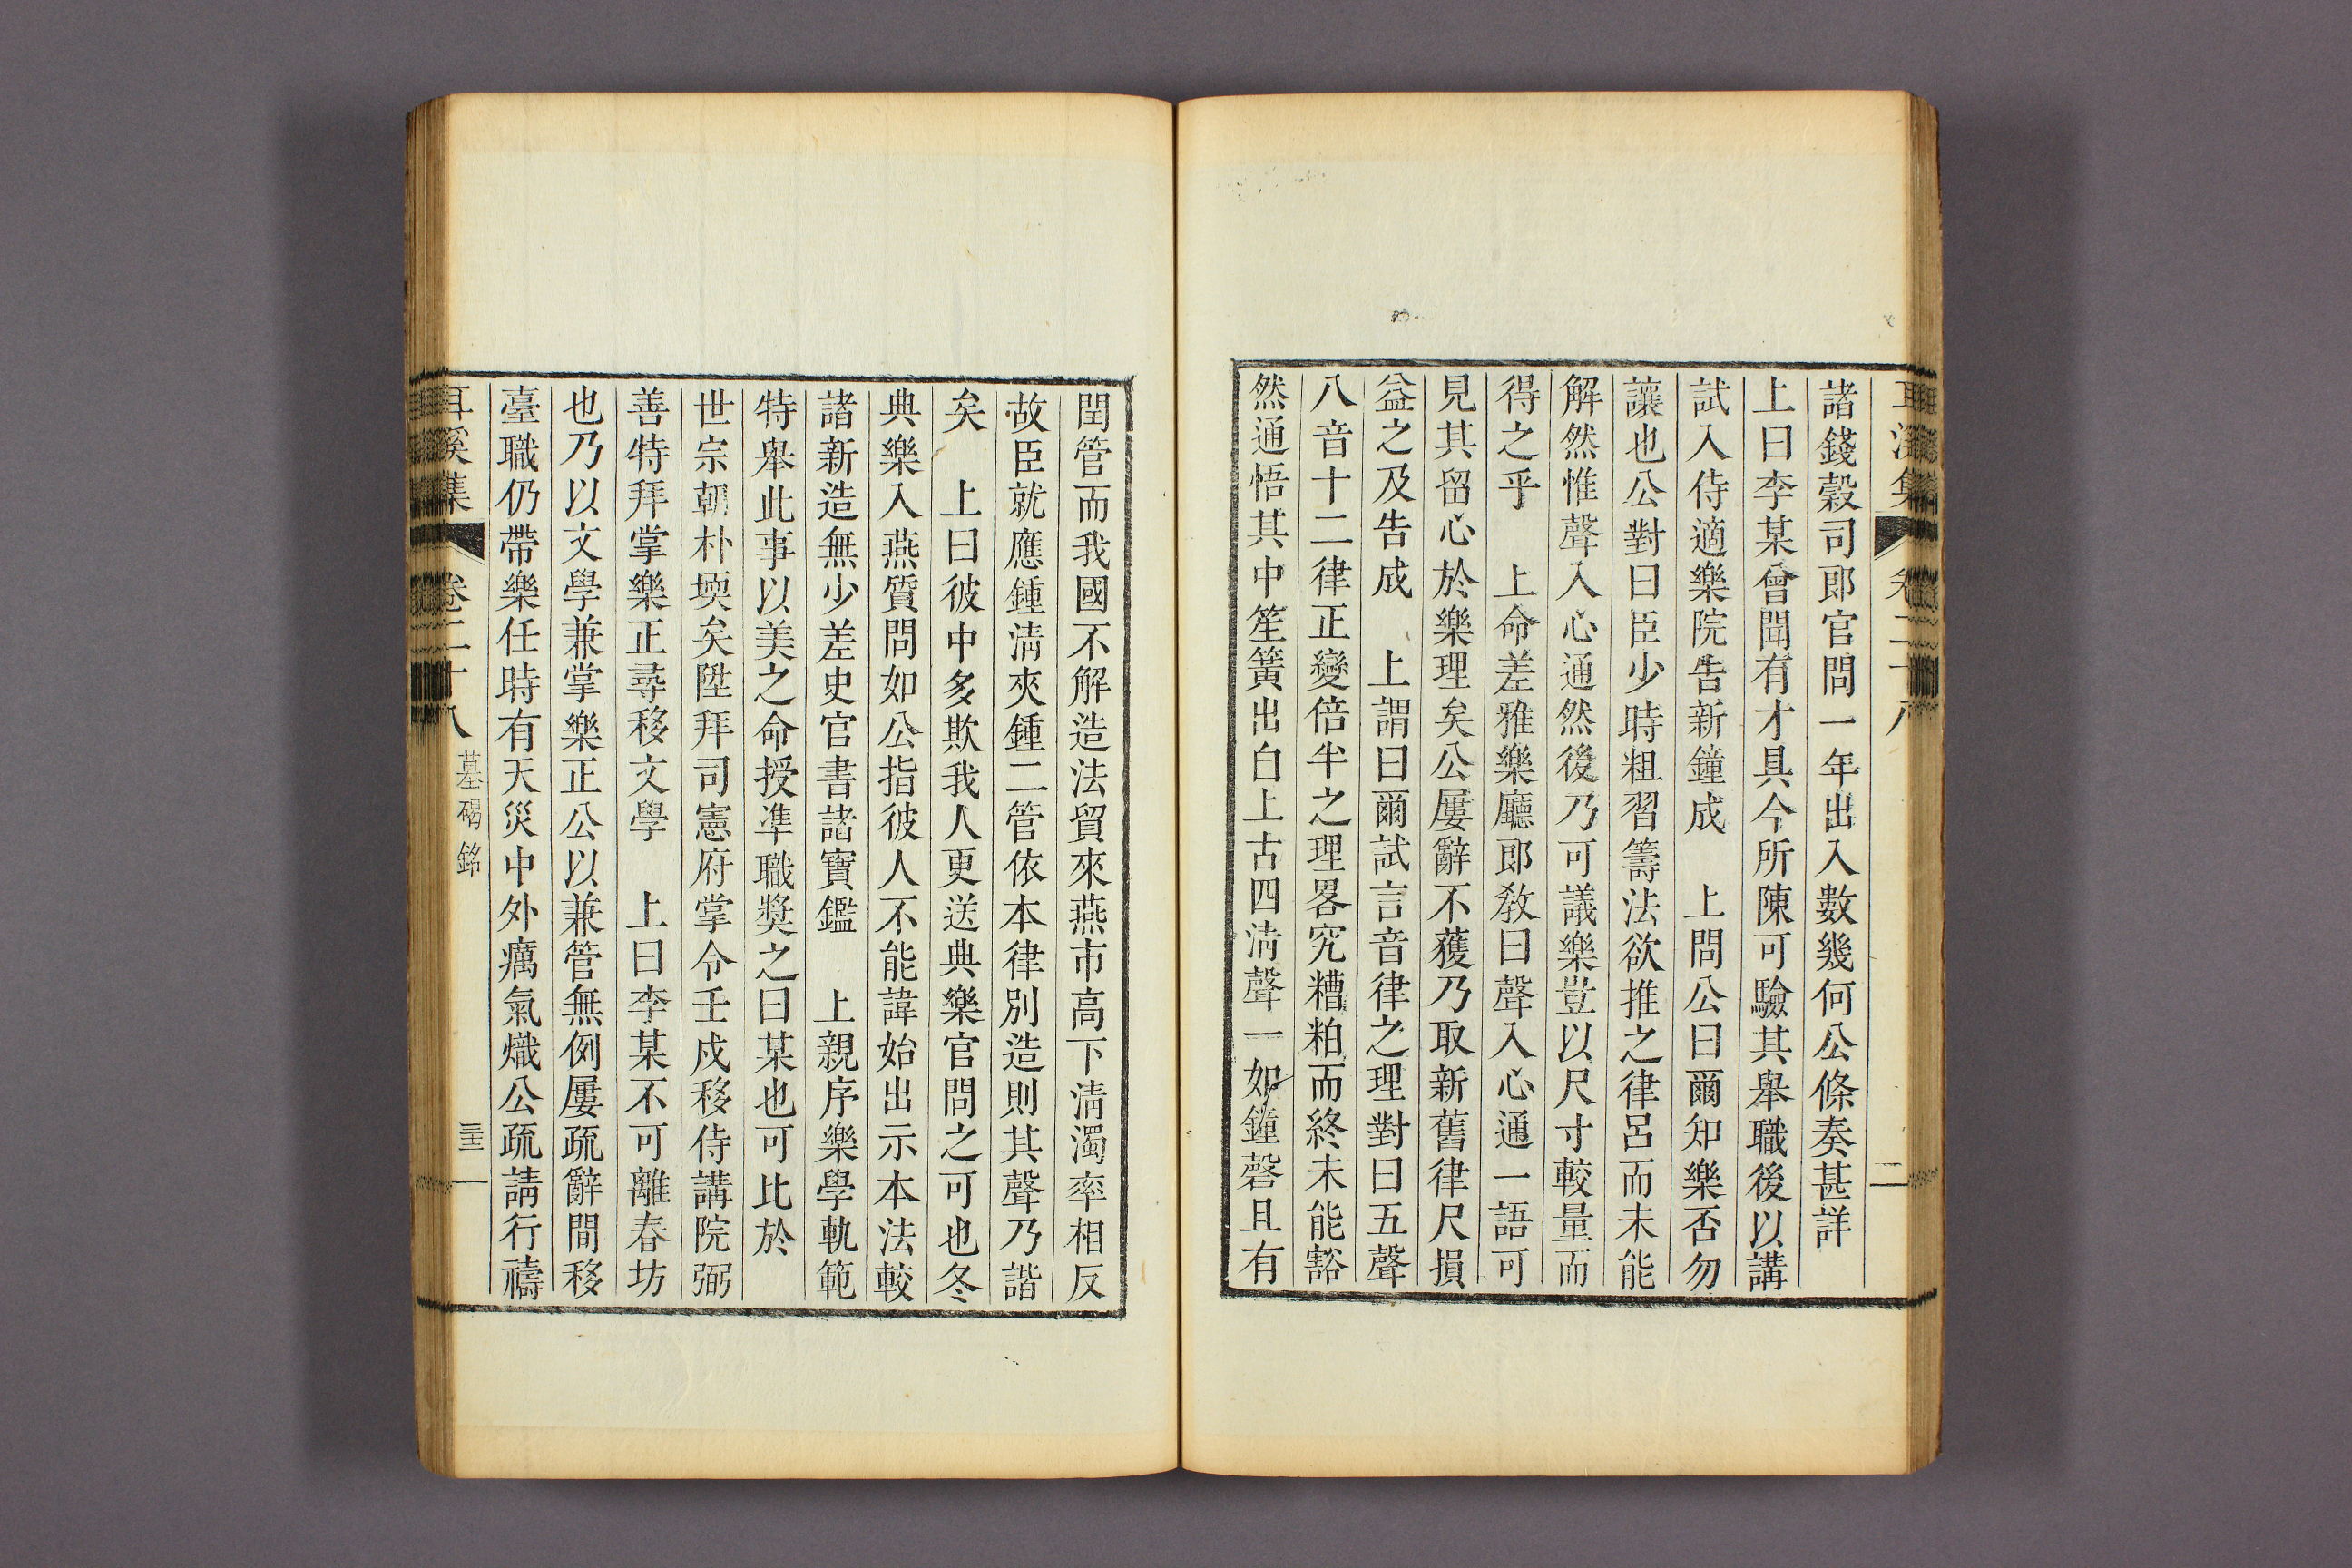 諸錢穀司郎官問一年出入數幾何公條奏甚詳
上曰李某曾聞有才具今所陳可驗其舉職後以講
試入侍適樂院告新鐘成　上問公曰爾知樂否勿
讓也公對曰臣少時粗習籌法欲推之律呂而未能
解然惟聲入心通然後乃可議樂豈以尺寸較量而
得之乎　上命差雅樂廳郎敎曰聲入心通一語可
見其留心於樂理矣公屢辭不獲乃取新舊律尺損
益之及告成　上謂曰爾試言音律之理對曰五聲
八音十二律正變倍半之理畧究糟粕而終未能豁
然通悟其中笙簧出自上古四淸聲一如鐘磬且有
閏管而我國不解造法貿來燕市高下淸濁率相反
故臣就應鍾淸夾鍾二管依本律別造則其聲乃諧
矣　上曰彼中多欺我人更送典樂官問之可也冬
典樂入燕質問如公指彼人不能諱始出示本法較
諸新造無少差史官書諸寶鑑　上親序樂學軌範
特舉此事以美之命授準職奬之曰某也可比於
世宗朝朴堧矣陞拜司憲府掌令壬戌移侍講院弼
善特拜掌樂正尋移文學　上曰李某不可離春坊
也乃以文學兼掌樂正公以兼管無例屢疏辭間移
臺職仍帶樂任時有天災中外癘氣熾公疏請行禱
耳溪集　卷二十八　墓碣銘